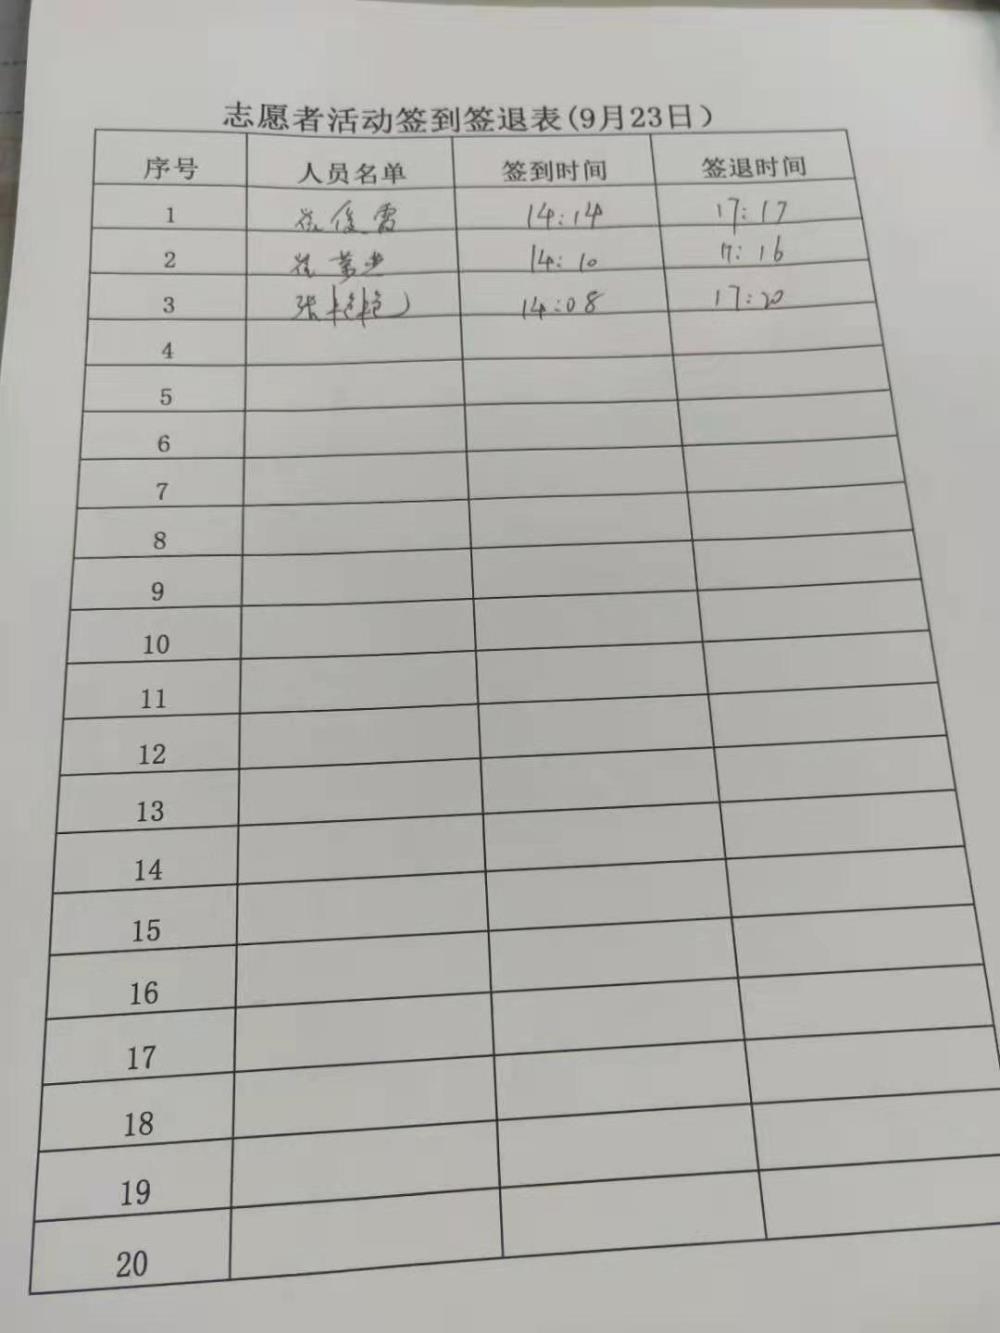 志愿者活动签到签退表(9月23日)
序号 人员名单 签到时间 签退时间
1 14:14 17:17
2 14:10 17:16
3 张艳艳 14:08 17:20
4
5
6
7
8
9
10
11
12
13
14
15
16
17
18
19
20